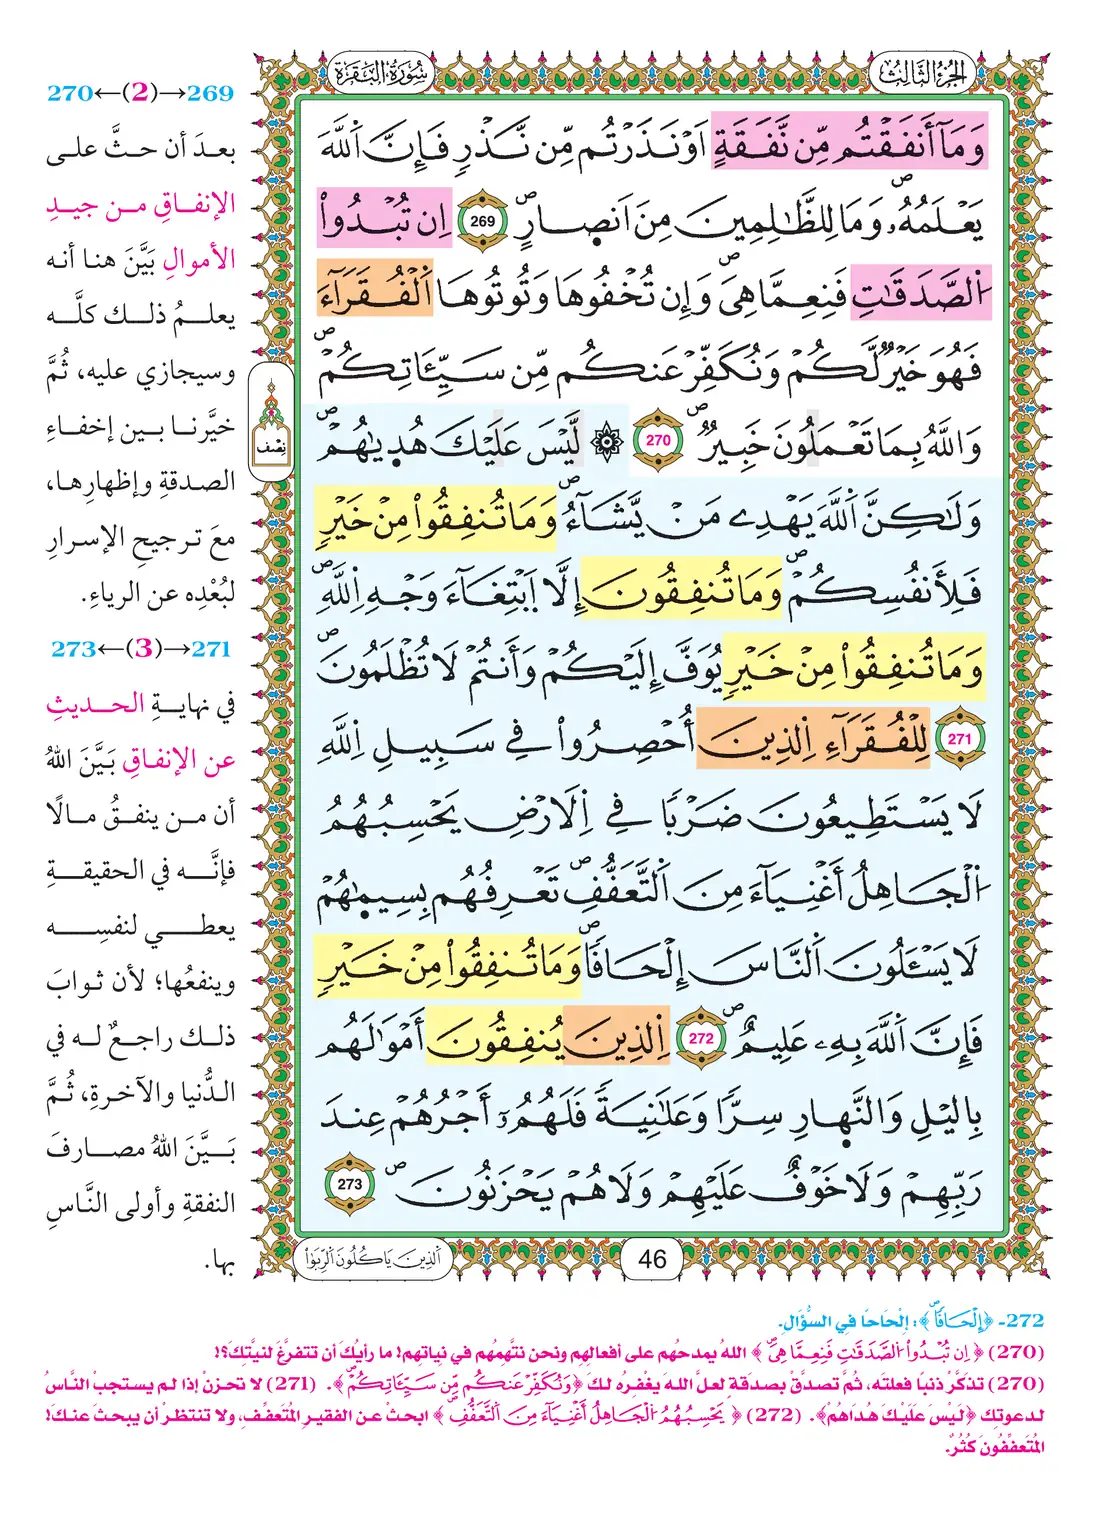 الجزء الثالث
سورة البقرة
وَمَا أَنفَقْتُم مِّن نَّفَقَةٍ اَوْ نَذَرْتُم مِّن نَّذْرٖ فَإِنَّ اَ۬للَّهَ
يَعْلَمُهُۥۖ وَمَا لِلظَّٰلِمِينَ مِنَ اَنصِارٍۖ 269 اِن تُبْدُواْ
اُ۬لصَّدَقَٰتِ فَنِعِمَّا هِيَۖ وَإِن تُخْفُوهَا وَتُوتُوهَا اَ۬لْفُقَرَآءَ
فَهُوَ خَيْرٞ لَّكُمْ وَنُكَفِّرْ عَنكُم مِّن سَيِّـَٔاتِكُمْۖ
وَاللَّهُ بِمَا تَعْمَلُونَ خَبِيرٞۖ 270 ۞ لَّيْسَ عَلَيْكَ هُد۪يٰهُمْۖ
وَلَٰكِنَّ اَ۬للَّهَ يَهْدِے مَنْ يَّشَآءُۖ وَمَا تُنفِقُواْ مِنْ خَيْرٖ
فَلِأَنفُسِكُمْۖ وَمَا تُنفِقُونَ إِلَّا اَ۪بْتِغَآءَ وَجْهِ اِ۬للَّهِۖ
وَمَا تُنفِقُواْ مِنْ خَيْرٖ يُوَفَّ إِلَيْكُمْ وَأَنتُمْ لَا تُظْلَمُونَۖ
271 لِلْفُقَرَآءِ اِ۬لذِينَ أُحْصِرُواْ فِے سَبِيلِ اِ۬للَّهِ
لَا يَسْتَطِيعُونَ ضَرْبٗا فِے اِ۬لَارْضِ يَحْسِبُهُمُ
اُ۬لْجَاهِلُ أَغْنِيَآءَ مِنَ اَ۬لتَّعَفُّفِۖ تَعْرِفُهُم بِسِيمٰ۪هُمْ
لَا يَسْـَٔلُونَ اَ۬لنَّاسَ إِلْحَافٗاۖ وَمَا تُنفِقُواْ مِنْ خَيْرٖ
فَإِنَّ اَ۬للَّهَ بِهِۦ عَلِيمٌۖ 272 اِ۬لذِينَ يُنفِقُونَ أَمْوَٰلَهُم
بِاليْلِ وَالنَّه۪ارِ سِرّٗا وَعَلَٰنِيَةٗ فَلَهُمُۥٓ أَجْرُهُمْ عِندَ
رَبِّهِمْ وَلَا خَوْفٌ عَلَيْهِمْ وَلَا هُمْ يَحْزَنُونَۖ 273
نصف
46
اَ۬لذِينَ يَاكُلُونَ اَ۬لرِّبَوٰاْ
269→(2)←270
بعدَ أن حثَّ على
الإنفاقِ من جيدِ
الأموالِ بَيَّنَ هنا أنه
يعلمُ ذلك كلَّه
وسيجازي عليه، ثُمَّ
خيَّرنا بين إخفاءِ
الصدقةِ وإظهارِها،
معَ ترجيحِ الإسرارِ
لبُعْدِه عن الرياءِ.
271→(3)←273
في نهايةِ الحديثِ
عن الإنفاقِ بَيَّنَ اللهُ
أن من ينفقُ مالًا
فإنَّه في الحقيقةِ
يعطي لنفسِه
وينفعُها؛ لأن ثوابَ
ذلك راجعٌ له في
الدُّنيا والآخرةِ، ثُمَّ
بَيَّنَ اللهُ مصارفَ
النفقةِ وأولى النَّاسِ
بها.
272- ﴿إِلْحَافٗاۖ﴾: إلْحَاحًا في السُّؤَالِ.
(270) ﴿اِن تُبْدُواْ اُ۬لصَّدَقَٰتِ فَنِعِمَّا هِيَۖ﴾ اللهُ يمدحُهم على أفعالِهم ونحن نتَّهمُهم في نياتهم! ما رأيُكَ أن تتفرَّغَ لنيَّتِكَ؟!
(270) تذكَّرْ ذنبًا فعلتَه، ثُمَّ تصدَّقْ بصدقةٍ لعلَّ اللهَ يغْفِرُه لكَ ﴿وَنُكَفِّرْ عَنكُم مِّن سَيِّـَٔاتِكُمْۖ﴾. (271) لا تحزنْ إذا لم يستجبْ النَّاسُ
لدعوتِك ﴿لَيْسَ عَلَيْكَ هُدَاهُمْ﴾. (272) ﴿يَحْسِبُهُمُ اُ۬لْجَاهِلُ أَغْنِيَآءَ مِنَ اَ۬لتَّعَفُّفِۖ﴾ ابحثْ عن الفقيرِ المُتَعفِّفِ، ولا تنتظرْ أن يبحثَ عنكَ!
المُتَعفِّفُونَ كُثُرٌ.